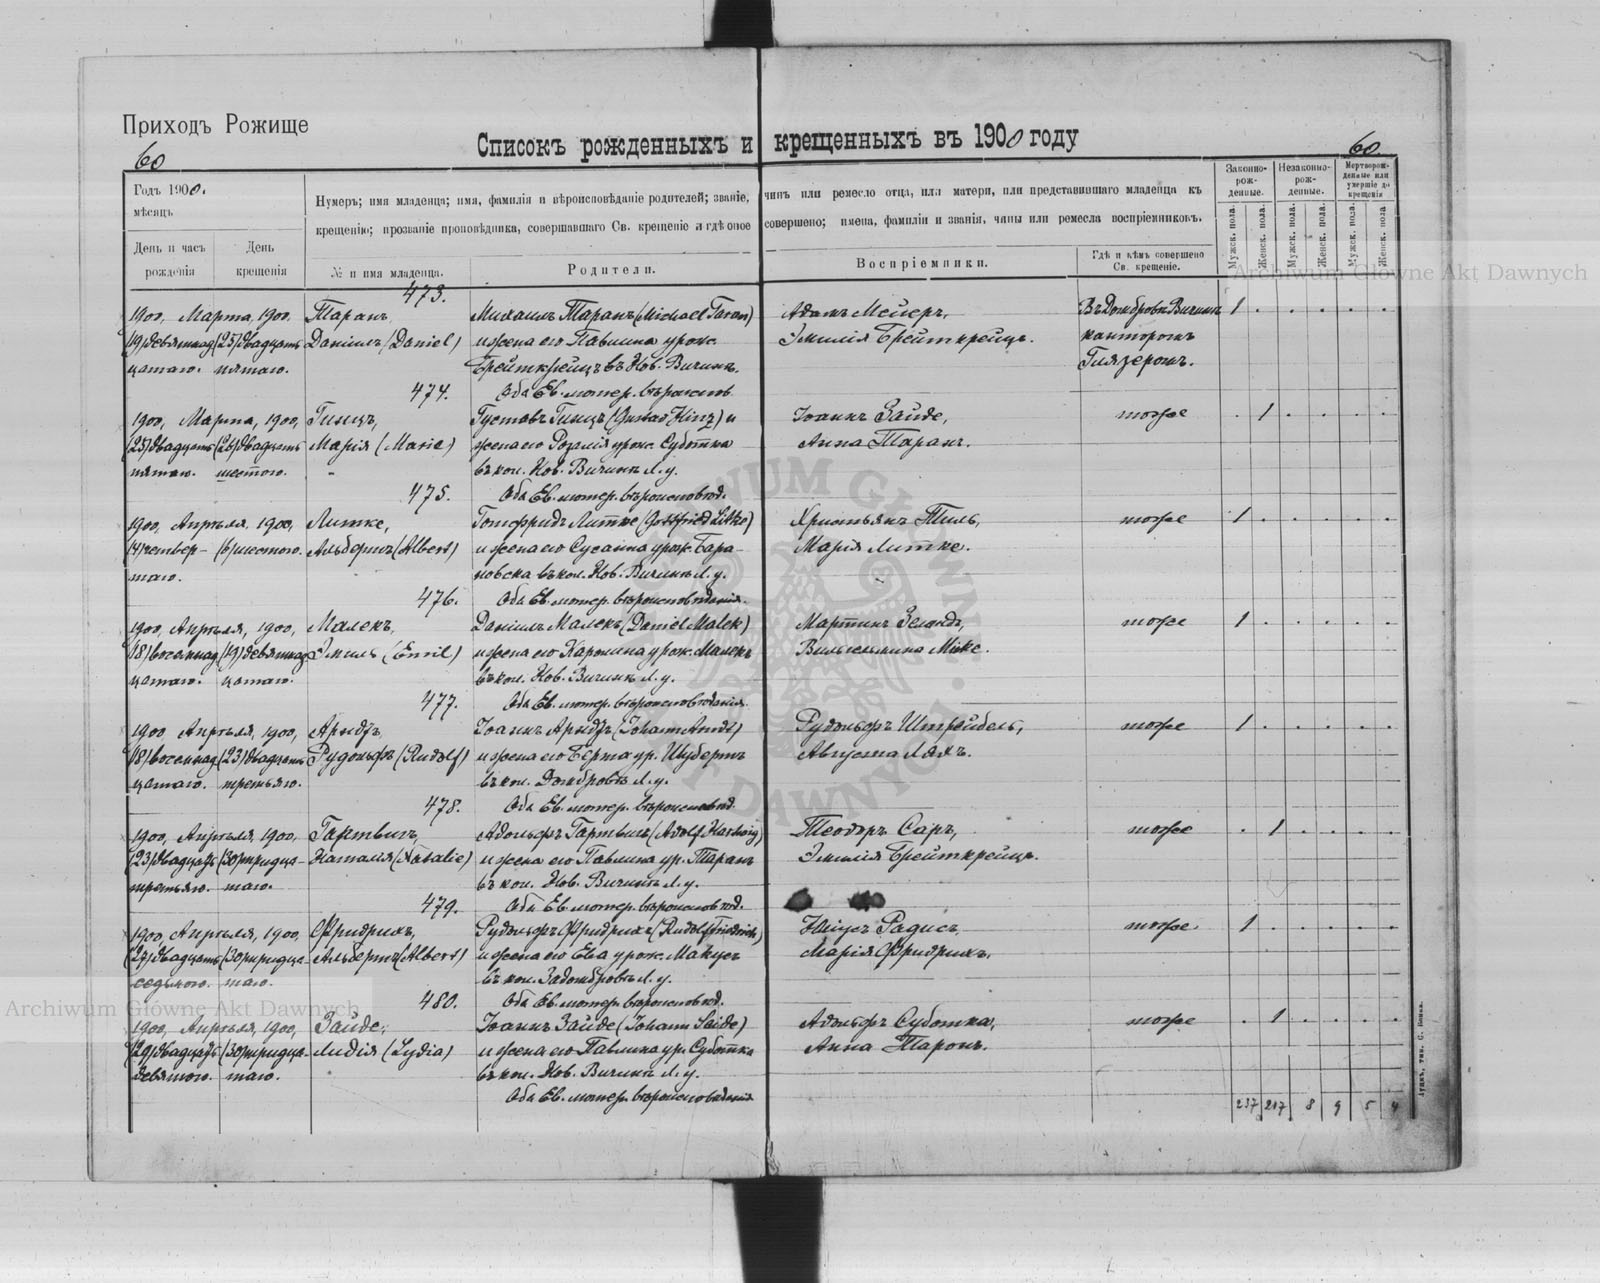 Приходъ Рожище
Списокъ рожденныхъ и крещенныхъ въ 1900 году
60
60.
Годъ 1900.
мѣсяцъ
День и часъ рожденія
День крещенія
Нумеръ; имя младенца; имя, фамилія и вѣроисповѣданіе родителей; званіе, чинъ или ремесло отца, или матери, или представившаго младенца къ
крещенію; прозваніе проповѣдника, совершавшаго Св. крещеніе и гдѣ оное совершено; имена, фамиліи и званія, чины или ремесла воспріемниковъ.
№ и имя младенца.
Родители.
Воспріемники.
Гдѣ и кѣмъ совершено Св. крещеніе.
Законно-рож-денные.
Незаконно-рож-денные.
Мертворож-денные или умершіе до крещенія
Мужск. пола.
Женск. пола.
Мужск. пола.
Женск. пола.
Мужск. пола.
Женск. пола
Archiwum Główne Akt Dawnych
473.
1900, Марта, 1900, Таранъ, Михаилъ Таранъ (Michael Taran) Адамъ Мейеръ, Въ Домбровкѣ 1
(19) девятнад (25) двадцать Даніилъ (Daniel) и жена его Павлина урож. Эмилія Брейткрейцъ. канторомъ
цатаго. пятаго. Брейткрейцъ въ Нов. Вичинѣ. Глязеромъ.
474. Оба Ев. лютер. вѣроисповѣд.
1900, Марта, 1900, Гинцъ, Густавъ Гинцъ (Gustav Hinz) и Іоаннъ Зайде, тоже 1
(25) двадцать (26) двадцать Марія (Marie) жена его Розалія урож. Суботка Анна Таранъ.
пятаго. шестого. въ кол. Нов. Вичинѣ Л. у.
475. Оба Ев. лютер. вѣроисповѣд.
1900, Апрѣля, 1900, Литке, Готфридъ Литке (Gottfried Litke) Христьянъ Тиль, тоже 1
(4) четвер- (6) шестого. Альбертъ (Albert) и жена его Сусанна урож. Бара- Марія Литке.
таго. новска въ кол. Нов. Вичинѣ Л. у.
476. Оба Ев. лютер. вѣроисповѣданія.
1900, Апрѣля, 1900, Малекъ, Даніилъ Малекъ (Daniel Malek) Мартинъ тоже 1
(18) восемнад (19) девятнад Эмиль (Emil) и жена его Каролина урож. Малекъ Вильгельмина
цатаго. цатаго. въ кол. Нов. Вичинѣ Л. у.
477. Оба Ев. лютер. вѣроисповѣданія.
1900 Апрѣля, 1900, Арндтъ, Іоаннъ Арндтъ (Johann Arndt) Рудольфъ Штрейбель, тоже 1
(18) восемнад (23) двадцать Рудольфъ (Rudolf) и жена его Берта ур. Шубертъ Августа Ляхъ.
цатаго. третьяго. въ кол. Домбровкѣ Л. у.
478. Оба Ев. лютер. вѣроисповѣд.
1900, Апрѣля, 1900, Гартвигъ, Адольфъ Гартвигъ (Adolf Hartwig) Теодоръ Саръ, тоже 1
(23) двадцать (30) тридца- Наталія (Natalie) и жена его Павлина ур. Таранъ Эмилія Брейткрейцъ.
третьяго. таго. въ кол. Нов. Вичинѣ Л. у.
479. Оба Ев. лютер. вѣроисповѣд.
1900, Апрѣля, 1900, Фридрихъ, Рудольфъ Фридрихъ (Rudolf Friedrich) Радисъ, тоже. 1
(27) двадцать (30) тридца- Альбертъ (Albert) и жена его Ева урож. Макусъ Марія Фридрихъ.
седьмого. таго. въ кол. Задомбровѣ Л. у.
Archiwum Główne Akt Dawnych
480. Оба Ев. лютер. вѣроисповѣд.
1900, Апрѣля, 1900, Зайде, Іоаннъ Зайде (Johann Saide) Адольфъ Суботка, тоже 1
(29) двадцать (30) тридца- Лидія (Lydia) и жена его Павлина ур. Суботка Анна Таронъ.
девятого. таго. въ кол. Нов. Вичинѣ Л. у.
Оба Ев. лютер. вѣроисповѣданія
237 217 8 9 5 4